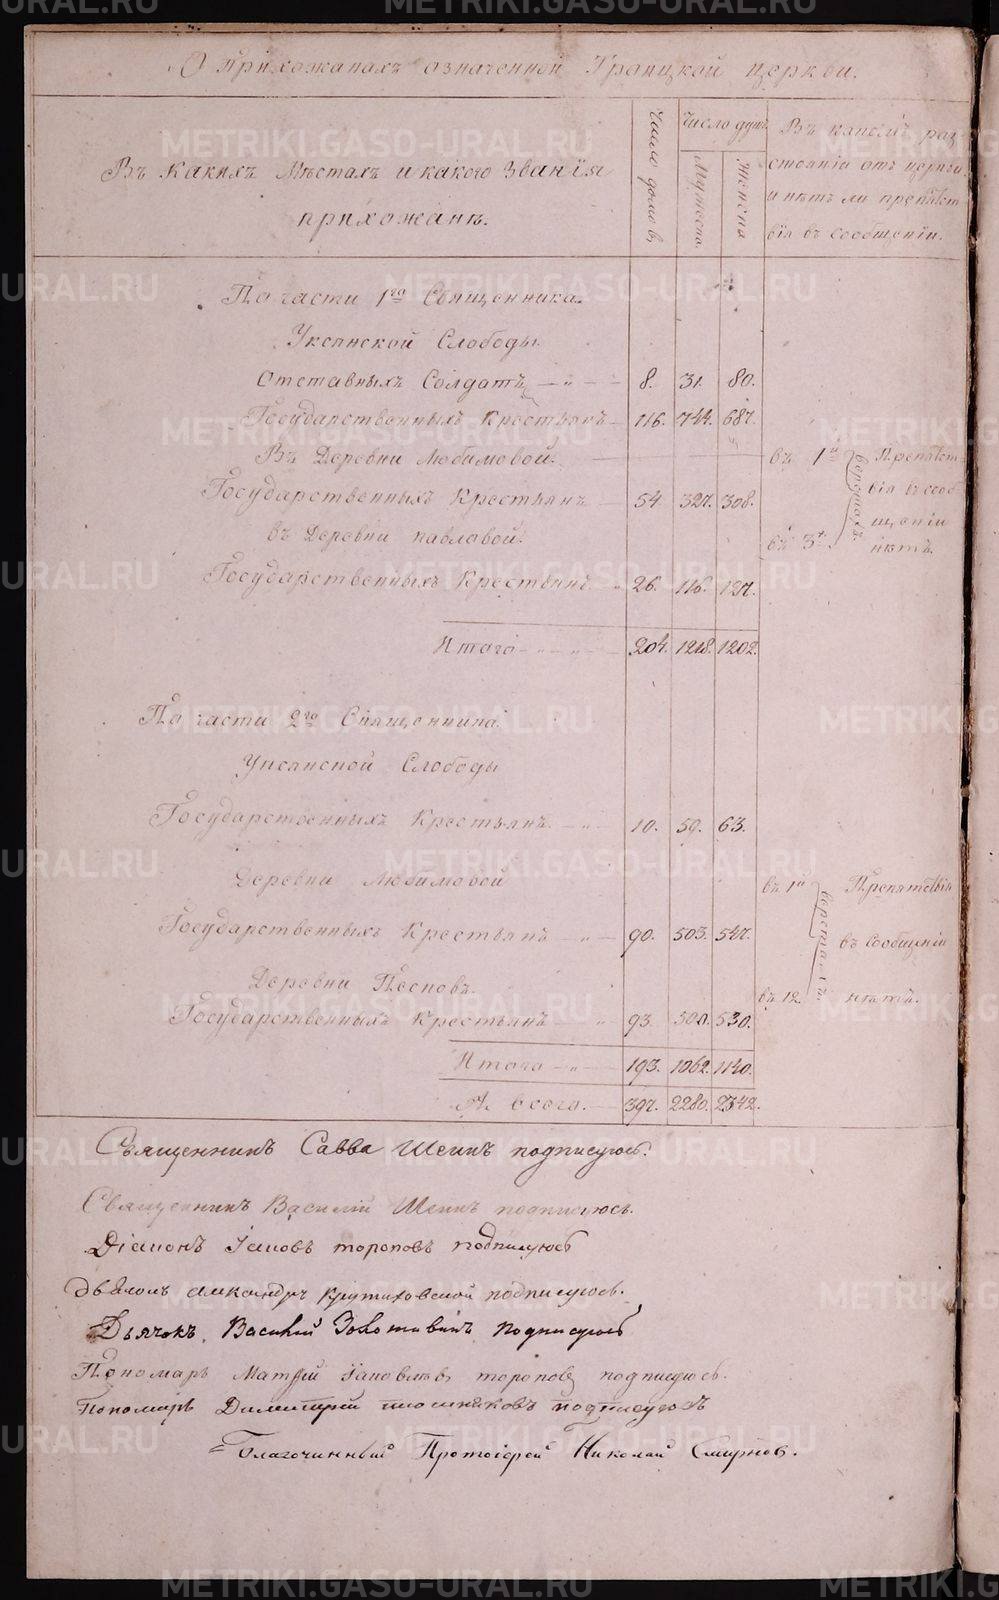 О прихожанахъ означенной Троицкой церкви.
Въ Какихъ Мѣстахъ и какого Званія
прихожане.
Число домовъ
Число душъ
Мужеска.
Женска
Въ какомъ раз-
стояніи отъ церкви
и нѣтъ ли препятст-
вія въ сообщеніи.
По части 1го Священника.
Уксянской Слободы
Отставныхъ Солдатъ — „ — 8. 31. 80.
Государственныхъ Крестьянъ — 116. 744. 687.
Въ Деревни Любимовой. въ 1й
Государственныхъ Крестьянъ — 54. 327. 308.
въ Деревни павловой. въ 3х
верстахъ.
Препятст-
вія въ сооб-
щеніи
нѣтъ.
Государственныхъ Крестьянъ — „ 26. 116. 127.
Итого — „ — „ — 204. 1218. 1202.
По части 2го Священника.
Уксянской Слободы
Государственныхъ Крестьянъ — „ — 10. 59. 63.
Деревни Любимовой въ 1й
Государственныхъ Крестьянъ — „ — 90. 503. 547.
верстахъ
Препятствія
въ сообщеніи
нѣтъ.
Деревни Песковъ. въ 12.
Государственныхъ Крестьянъ — „ 93. 500. 530.
Итого — „ — 193. 1062. 1140.
А всего. — 397. 2280. 2342.
Священникъ Савва Шеинъ подписуюсь.
Священникъ Василій Шеинъ подписуюсь.
Діаконъ Іаковъ тороповъ подписуюсь
дьяконъ александръ Крутиховской подписуюсь.
Дьячокъ Василій Золотавинъ подписуюсь
Пономарь Матѳей Іаковлевъ тороповъ подписуюсь.
Пономарь Димитрій подписуюсь
Благочинный Протоіерей Николай Смирновъ.
METRIKI.GASO-URAL.RU